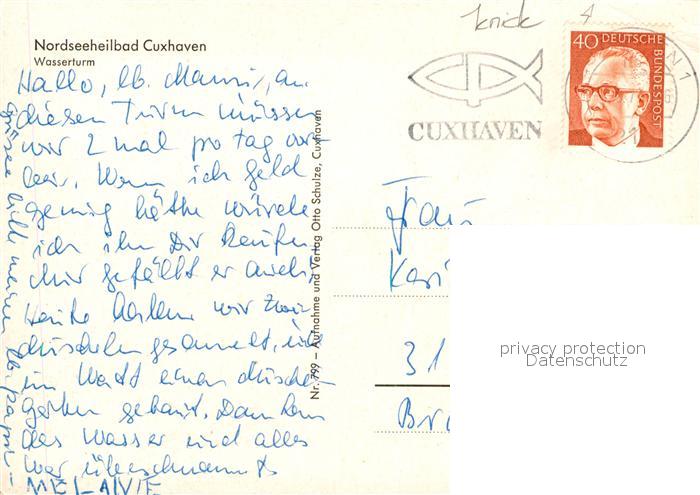 knick 4
Nordseeheilbad Cuxhaven
Wasserturm
40 DEUTSCHE
BUNDESPOST
CUXHAVEN
N 1
Hallo, lb. Mami, an
diesen Turm müssen
wir 2 mal pro tag vor
bei. Wenn ich geld
genug hätte würde
ich ihn Dir kaufen
Mir gefällt er auch.
Heute haben wir zwei
Muscheln gesammelt, und
im Watt einen Muschel
garten gebaut. Dann kam
das Wasser und alles
war überschwemmt
MELANIE
Grüsse bitte meinen lb. Papi
Nr. 799 – Aufnahme und Verlag Otto Schulze, Cuxhaven
Frau
31
privacy protection
Datenschutz